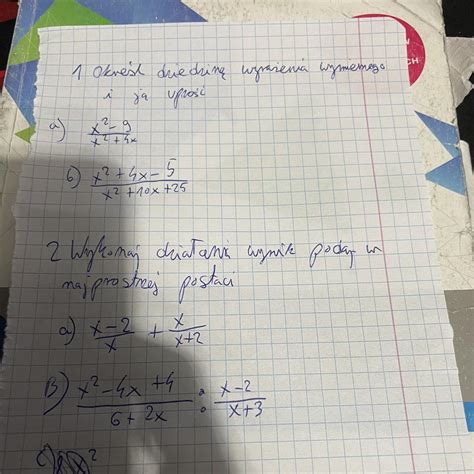 1 Określ dziedzinę wyrażenia wymiernego
i ją uprość
a) x²-9 / x²+4x
b) x²+4x-5 / x²+10x+25
2 Wykonaj działania wynik podaj w
najprostszej postaci
a) x-2 / x + x / x+2
B) x²-4x+4 / 6+2x : x-2 / x+3